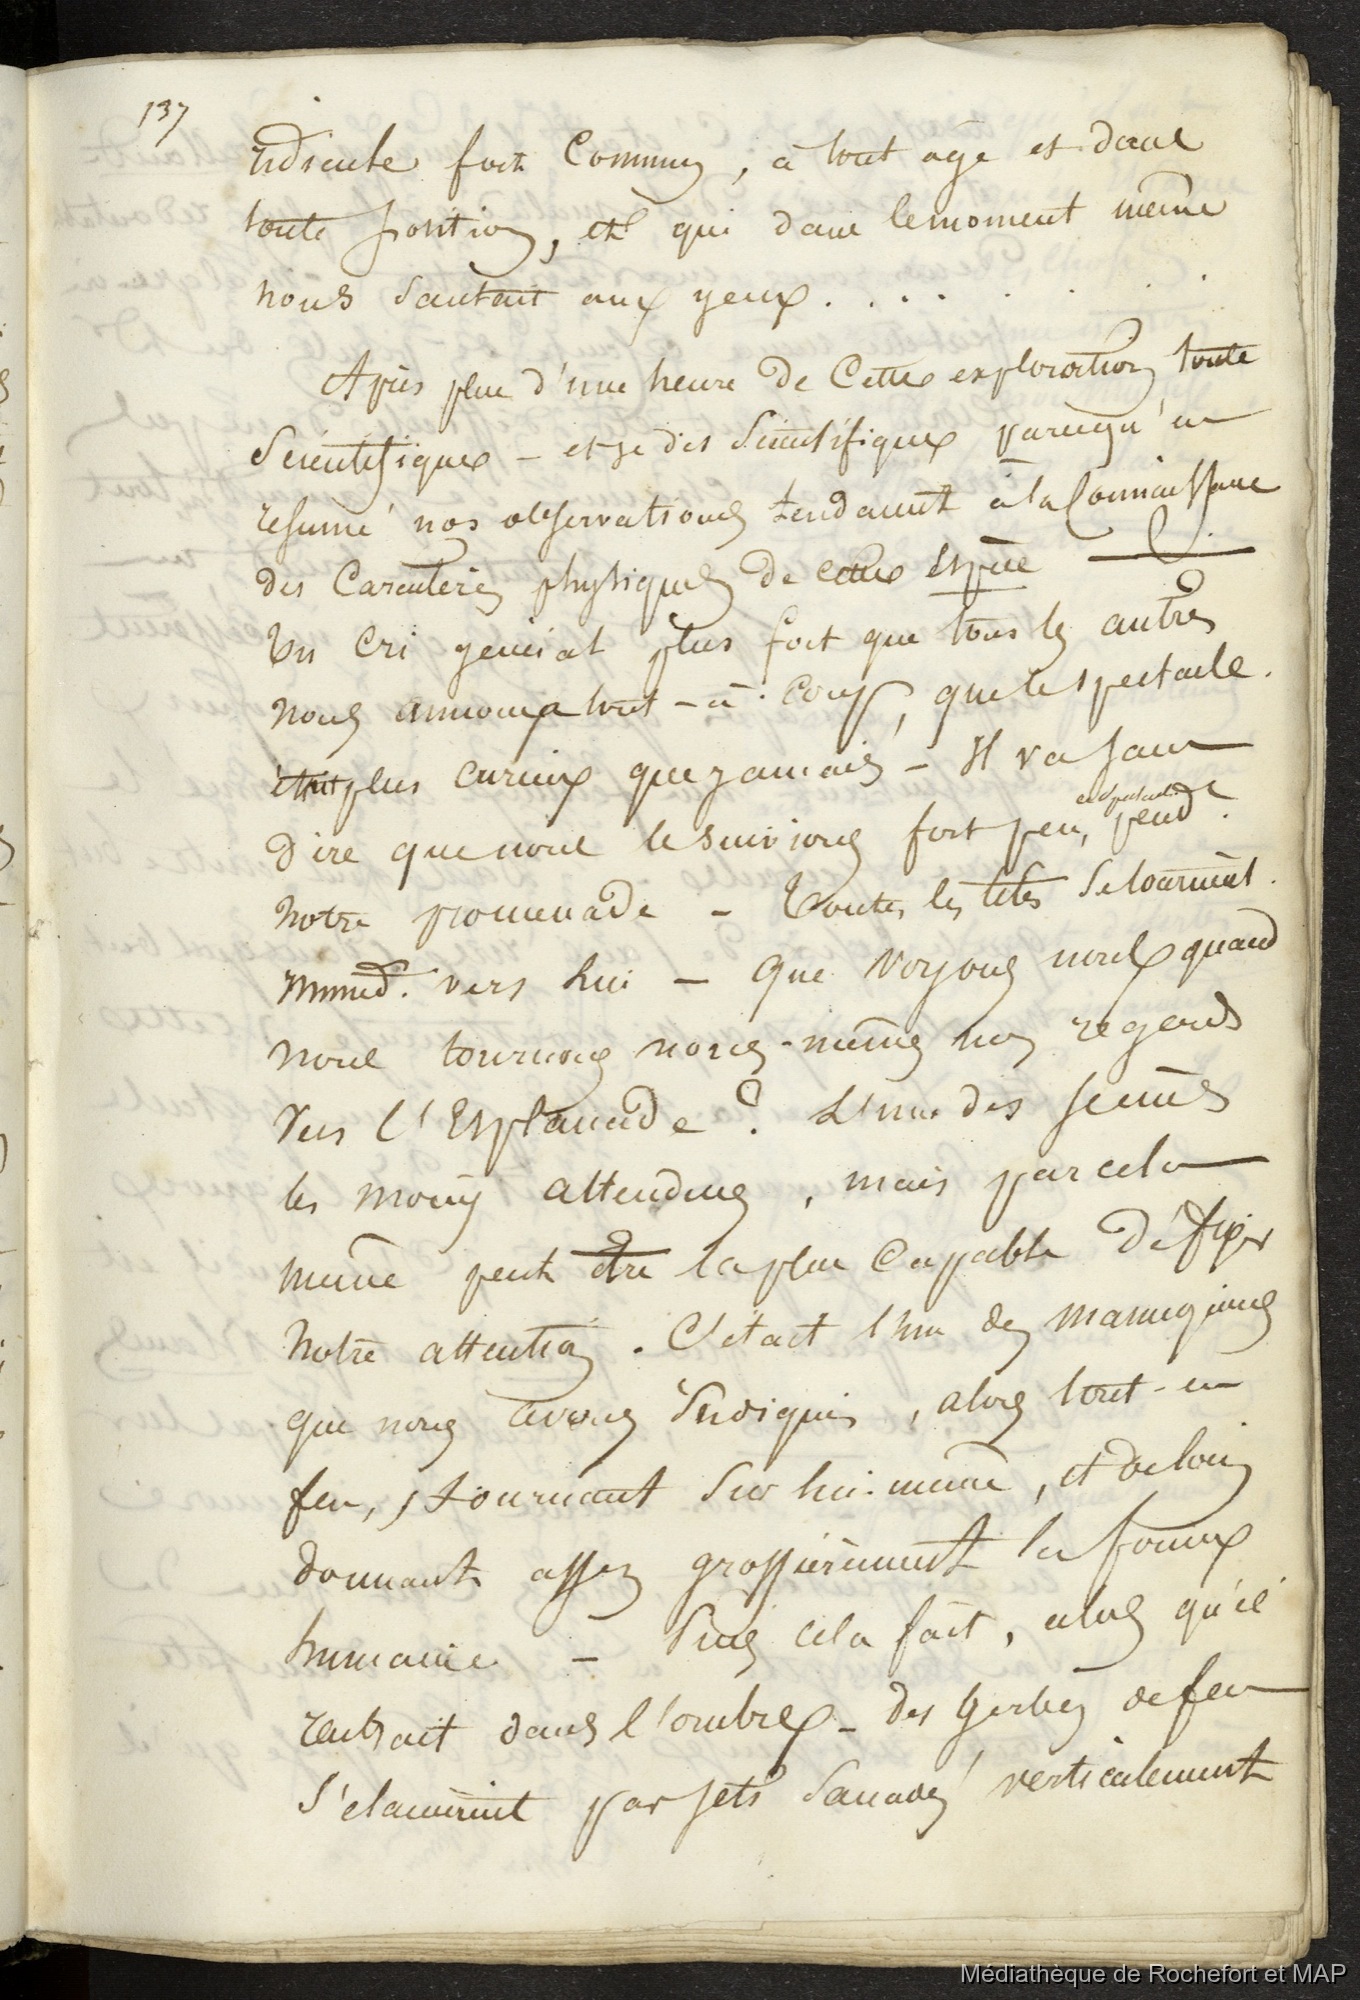 137
ridicule fort commun, à tout age et dans
toute position, et qui dans le moment même
nous sautait aux yeux . . . . . . . .
Après plus d'une heure de cette exploration toute
scientifique – et je dis scientifique parcequ'en
resumé nos observations tendaient à la connaissance
des caractères physiques de cette espèce
Un cri general plus fort que tous les autres
nous annonça tout-à-coup, que le spectacle
était plus curieux que jamais – Il va sans
dire que nous le suivions fort peu, pendt
notre promenade – Toutes les têtes se tournèrent
immédt. vers lui – Que voyons nous quand
nous tournons nous-mêmes nos regards
vers l'Esplanade ? L'une des scenes
les moins attendues, mais par cela
même peut être la plus capable de fixer
notre attention. C'était l'un des mannequins
que nous avons indiqués, alors tout-en
feu, tournant sur lui-même, et de loin
donnant assez grossièrement la forme
humaine – Puis cela fait, alors qu'il
rentrait dans l'ombre – des gerbes de feu
s'élancèrent par jets saccadés verticalement
Médiathèque de Rochefort et MAP